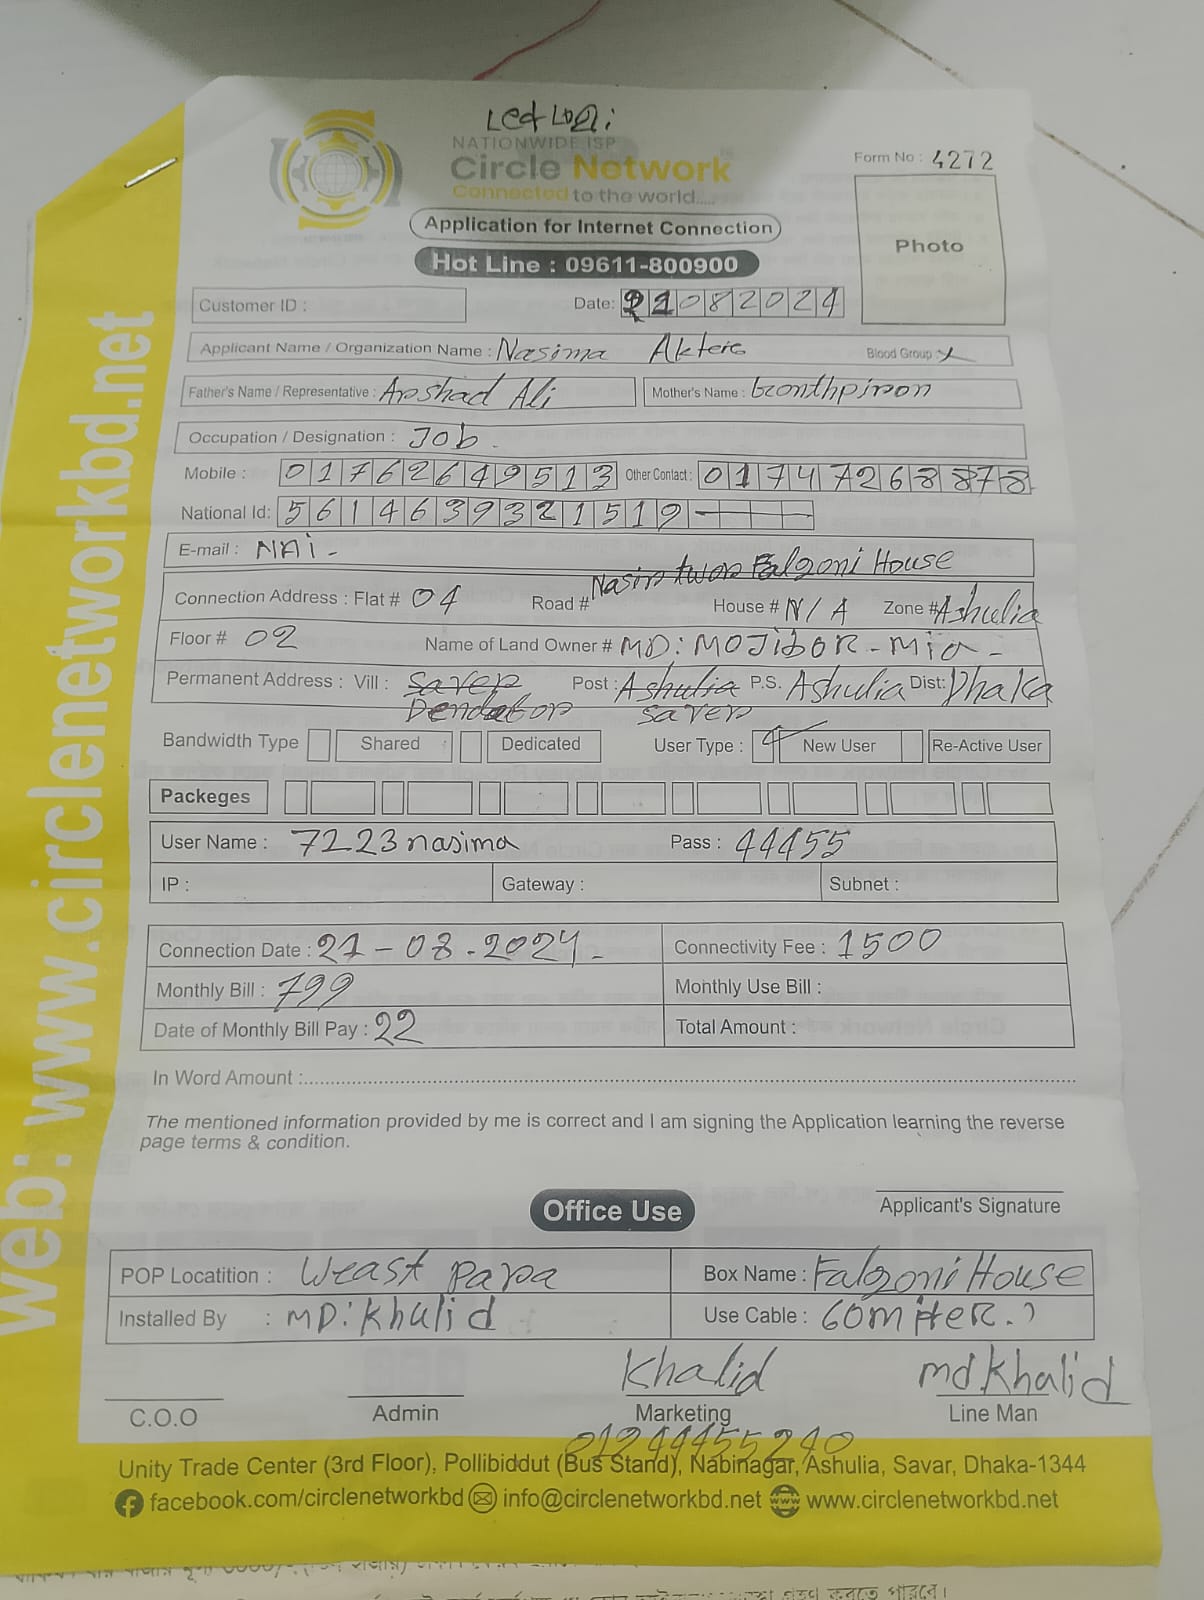 NATIONWIDE ISP
Circle Network
Connected to the world.....
Form No : 4272
Photo
Application for Internet Connection
Hot Line : 09611-800900
Customer ID :
Date: 21082024
Applicant Name / Organization Name : Nasima Akter
Blood Group :
Father's Name / Representative : Arshad Ali
Mother's Name :
Occupation / Designation : Job
Mobile : 01762649513 Other Contact : 01747268878
National Id: 5614639321519
E-mail : NAi -
Nasir Falgoni House
Connection Address : Flat # 04 Road # House # N/A Zone # Ashulia
Floor # 02 Name of Land Owner # MD: MOJiboR - Mia -
Permanent Address : Vill : Saver Post : Ashulia P.S. Ashulia Dist: Dhaka
Saver
Bandwidth Type Shared Dedicated User Type : New User Re-Active User
Packeges
User Name : 7223nasima Pass : 44455
IP : Gateway : Subnet :
Connection Date : 21-08-2024 - Connectivity Fee : 1500
Monthly Bill : 799 Monthly Use Bill :
Date of Monthly Bill Pay : 22 Total Amount :
In Word Amount :
The mentioned information provided by me is correct and I am signing the Application learning the reverse
page terms & condition.
Applicant's Signature
Office Use
POP Locatition : Weast para Box Name : Falgoni House
Installed By : MD: Khalid Use Cable : 60 miteR.
Khalid md.khalid
C.O.O Admin Marketing Line Man
01244455240
Unity Trade Center (3rd Floor), Pollibiddut (Bus Stand), Nabinagar, Ashulia, Savar, Dhaka-1344
facebook.com/circlenetworkbd info@circlenetworkbd.net www.circlenetworkbd.net
web: www.circlenetworkbd.net